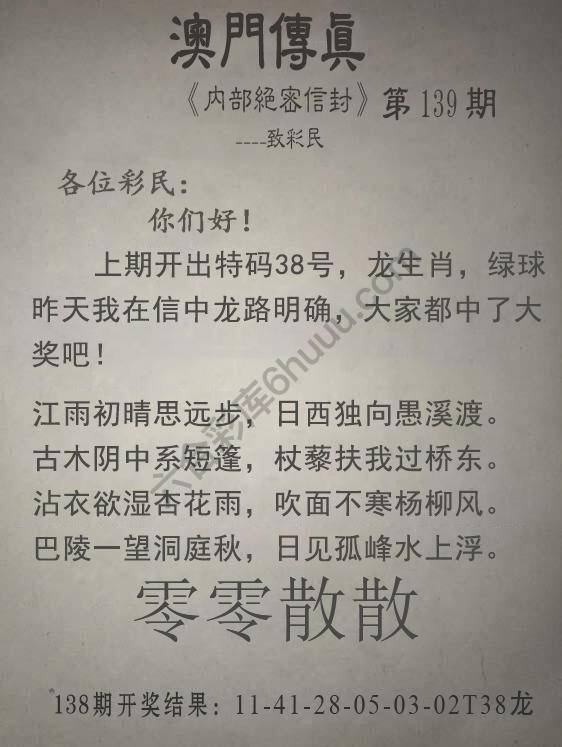 澳門傳真
《内部絕密信封》第139期
----致彩民
各位彩民：
你们好！
上期开出特码38号，龙生肖，绿球
昨天我在信中龙路明确，大家都中了大
奖吧！
江雨初晴思远步，日西独向愚溪渡。
古木阴中系短篷，杖藜扶我过桥东。
沾衣欲湿杏花雨，吹面不寒杨柳风。
巴陵一望洞庭秋，日见孤峰水上浮。
零零散散
138期开奖结果：11-41-28-05-03-02T38龙
六合彩库6huuu.com